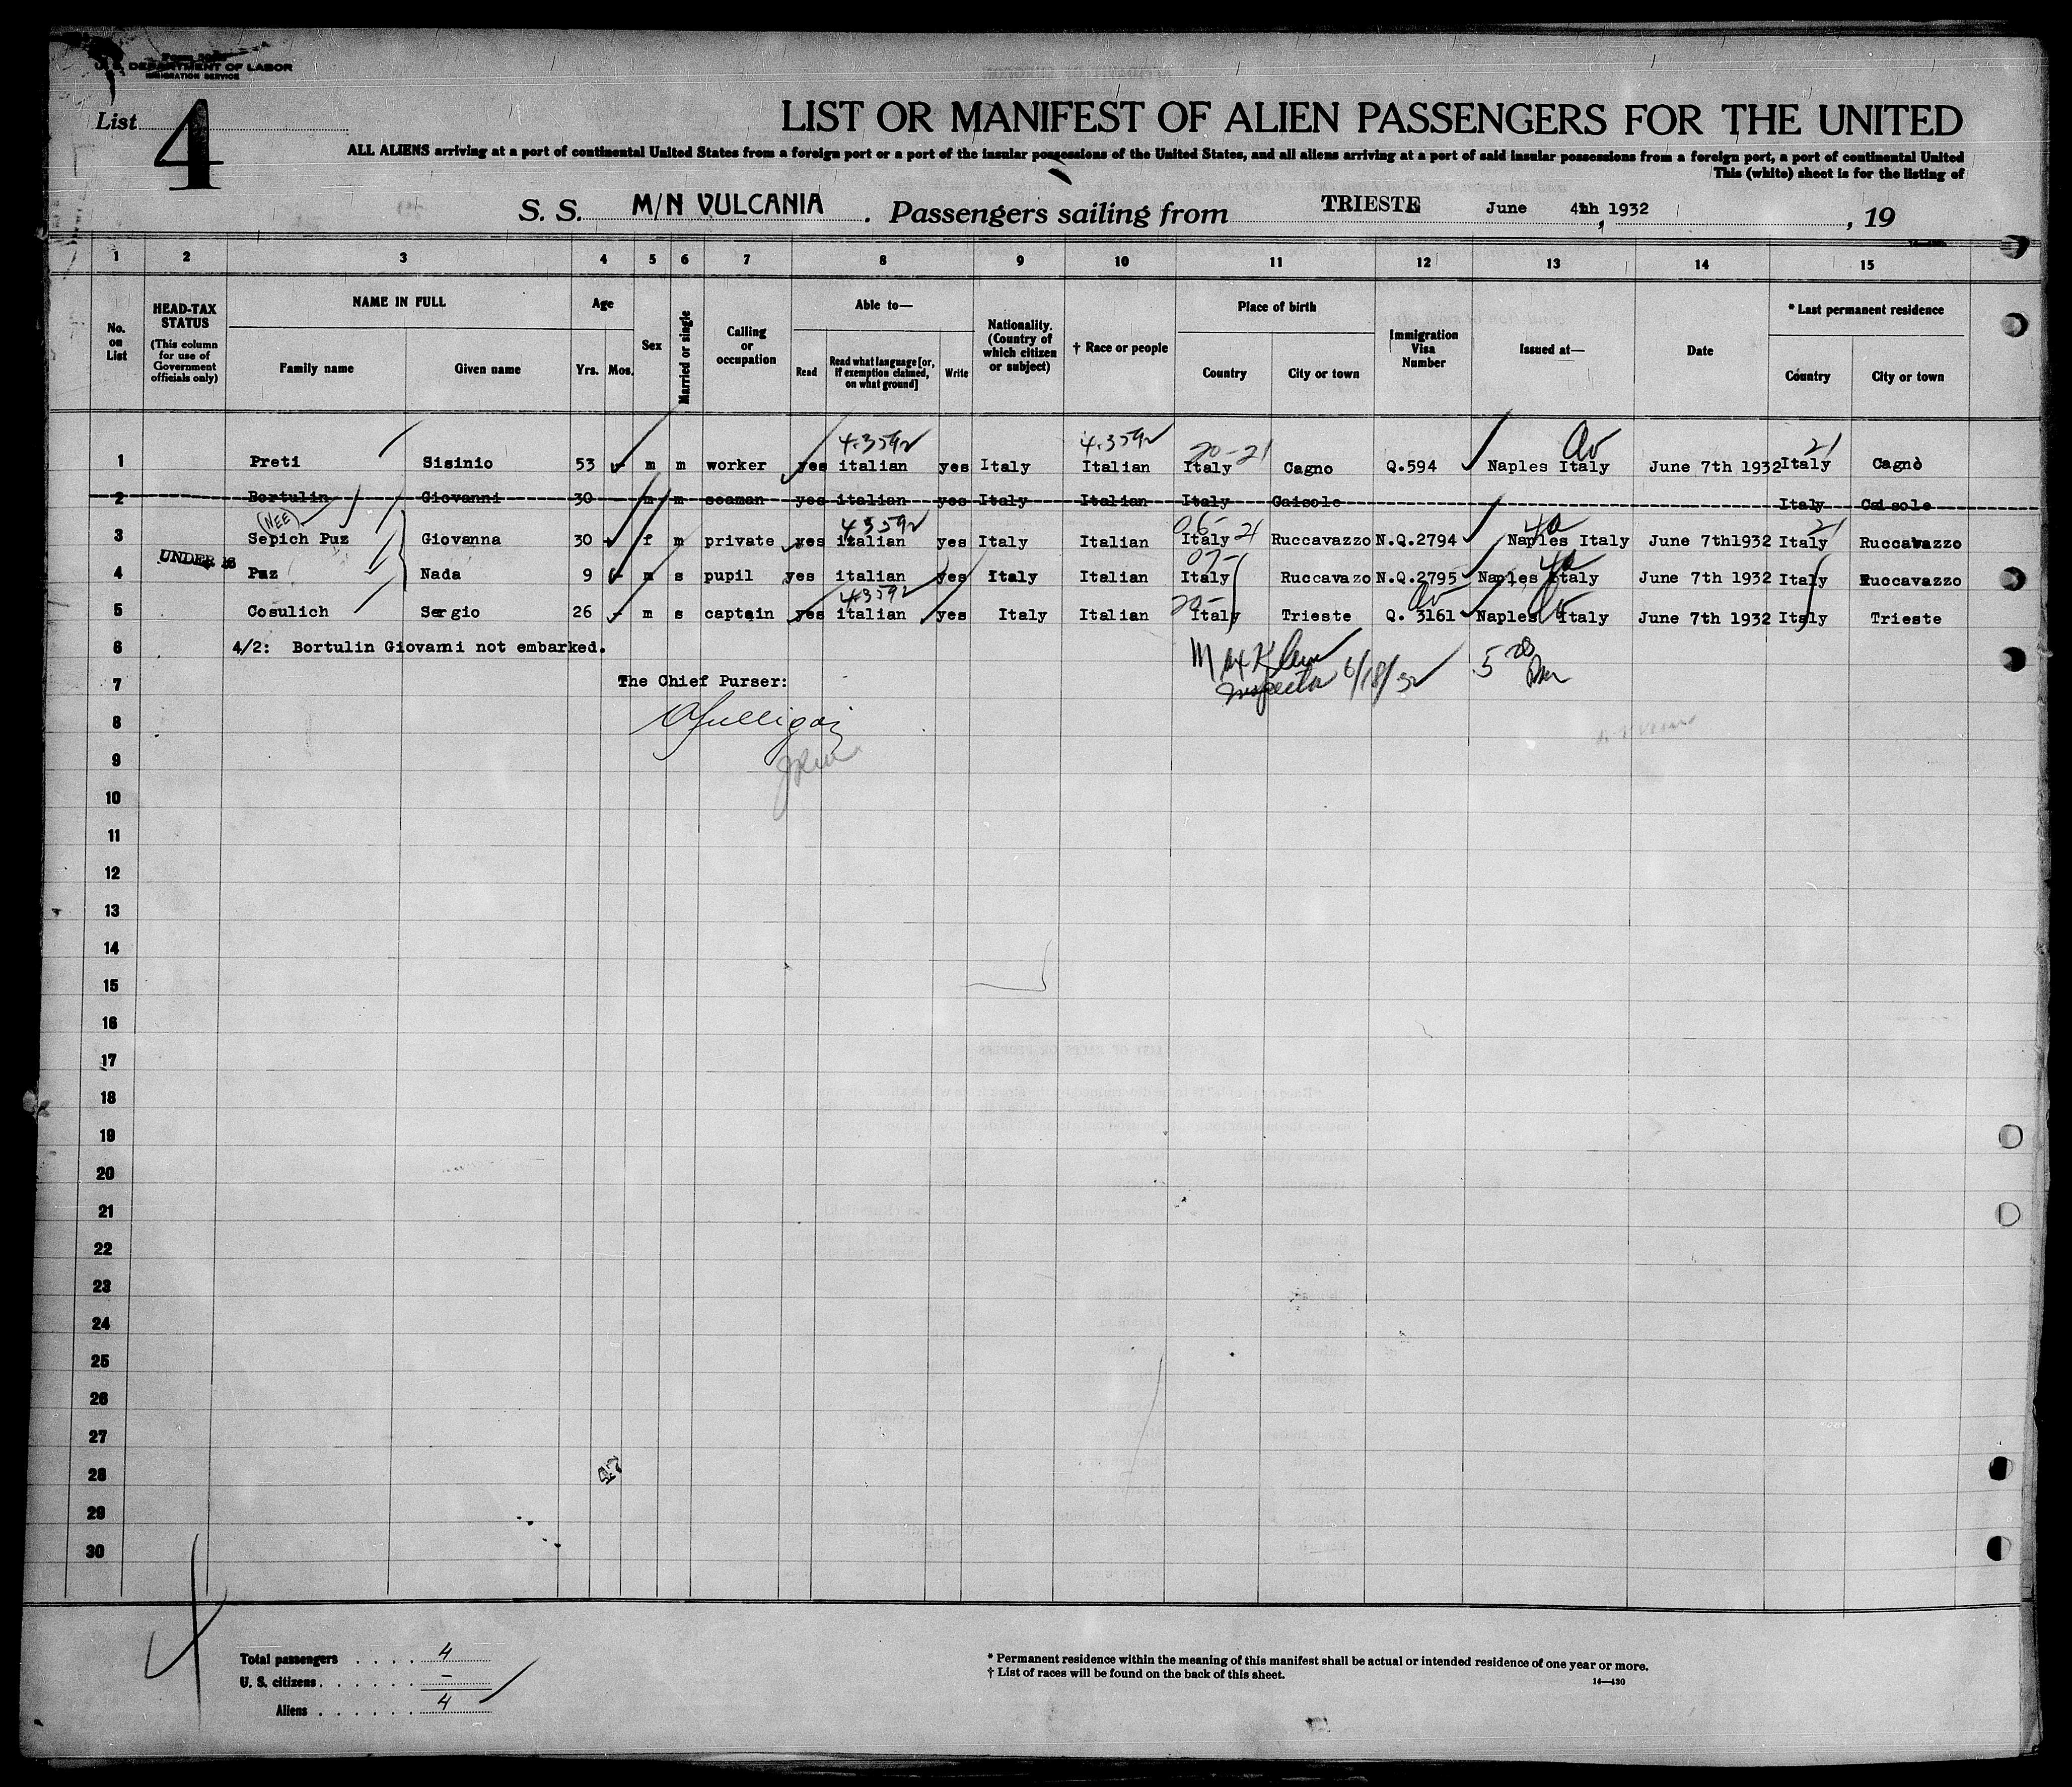 U. S. DEPARTMENT OF LABOR
IMMIGRATION SERVICE
List 4
LIST OR MANIFEST OF ALIEN PASSENGERS FOR THE UNITED
ALL ALIENS arriving at a port of continental United States from a foreign port or a port of the insular possessions of the United States, and all aliens arriving at a port of said insular possessions from a foreign port, a port of continental United
This (white) sheet is for the listing of
S. S. M/N VULCANIA. Passengers sailing from TRIESTE June 4th 1932, 19
1 2 3 4 5 6 7 8 9 10 11 12 13 14 15
No. on List
HEAD-TAX STATUS (This column for use of Government officials only)
NAME IN FULL
Family name Given name
Age
Yrs. Mos.
Sex
Married or single
Calling or occupation
Able to—
Read Read what language [or, if exemption claimed, on what ground] Write
Nationality. (Country of which citizen or subject)
† Race or people
Place of birth
Country City or town
Immigration Visa Number
Issued at—
Date
* Last permanent residence
Country City or town
4-3592 4-3592 20-21 21
1 Preti Sisinio 53 - m m worker yes italian yes Italy Italian Italy Cagno Q.594 Naples Italy June 7th 1932 Italy Cagnò
2 Bortulin Giovanni 30 m m seaman yes italian yes Italy Italian Italy Caisole Italy Caisole
(NEE) 43592 21
3 Sepich Puz Giovanna 30 - f m private yes italian yes Italy Italian Italy 21 Ruccavazzo N.Q.2794 Naples Italy June 7th1932 Italy Ruccavazzo
UNDER 16
4 Puz Nada 9 - m s pupil yes italian yes Italy Italian Italy Ruccavazo N.Q.2795 Naples Italy June 7th 1932 Italy Ruccavazzo
43592
5 Cosulich Sergio 26 - m s captain yes italian yes Italy Italian Italy Trieste Q. 3161 Naples Italy June 7th 1932 Italy Trieste
6 4/2: Bortulin Giovanni not embarked.
Max Klein
Inspector 6/18/32
7 The Chief Purser:
8
9
10
11
12
13
14
15
16
17
18
19
20
21
22
23
24
25
26
27
28
29
30
47
4
Total passengers . . . . 4
U. S. citizens . . . . . . –
Aliens . . . . . . 4
* Permanent residence within the meaning of this manifest shall be actual or intended residence of one year or more.
† List of races will be found on the back of this sheet.
14—430